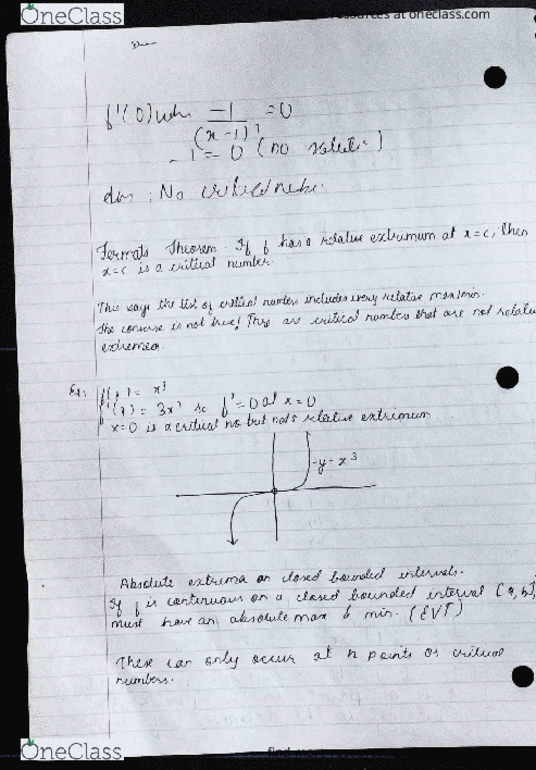 OneClass
resources at oneclass.com
f'(0) when -1 / (x-1)² = 0
-1 = 0 (no solution)
No critical
Fermats Theorem. If f has a relative extrimum at x=c, then
x=c is a critical number.
This says the list of critical numbers includes every relative max/min.
The converse is not true! There are critical numbers that are not relative
extrema.
Ex: f(x) = x³
f'(x) = 3x² so f'=0 at x=0
x=0 is a critical no but not a relative extrimum
y=x³
Absolute extrema on closed bounded intervals.
If f is continuous on a closed bounded interval [a,b],
must have an absolute max & min. (EVT)
These can only occur at points or critical
numbers.
OneClass